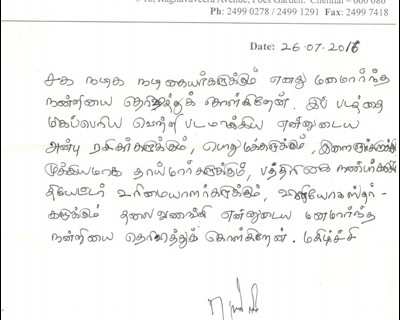 # 18, Raghavaveera Avenue, Poes Garden. Chennai – 600 086
Ph: 2499 0278 / 2499 1291 Fax: 2499 7418
Date: 26.07.2016
சக நடிக நடிகையர்களுக்கும் எனது மனமார்ந்த
நன்றியை தெரிவித்துக் கொள்கிறேன். இப் படத்தை
மகப்பெரிய வெற்றி படமாக்கிய என்னுடைய
அன்பு ரசிகர்களுக்கும், பொதுமக்களுக்கும், இளைஞர்களுக்கும்
முக்கியமாக தாய்மார்களுக்கும், பத்திரிகை நண்பர்களுக்கும்
தியேட்டர் உரிமையாளர்களுக்கும், வினியோகஸ்தர்-
களுக்கும் தலைவணங்கி என்னுடைய மனமார்ந்த
நன்றியை தெரிவித்துக் கொள்கிறேன். மகிழ்ச்சி